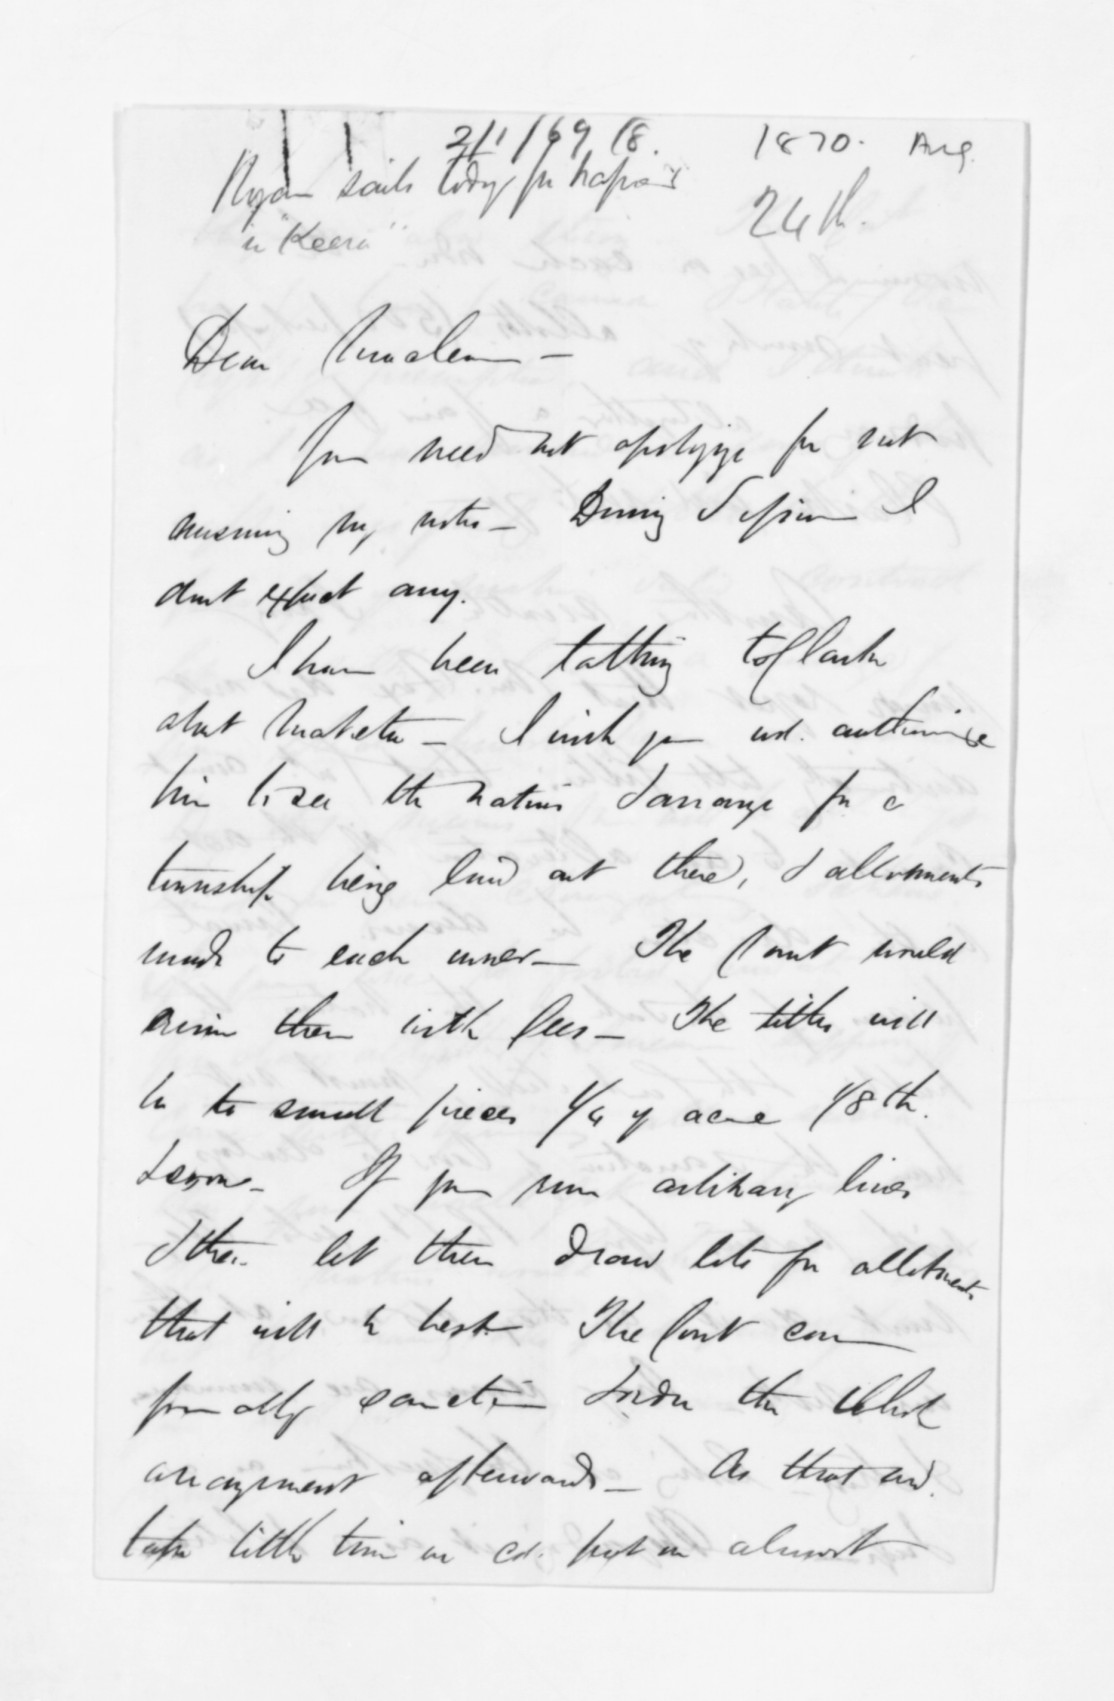 2/1/69/8. 1870. Aug.
24th.
Ryan sails today for Napier
in "Keera"
Dear McLean —
You need not apologize for not
answering my notes — During Session I
dont expect any.
I have been talking to Clarke
about Maketu — I wish you wd. authorise
him to see the natives & arrange for a
township being laid out there, & allotments
made to each owner — The Court would
them with fees — The titles will
be to small pieces 1/4 of acre 1/8th.
& so on — If you run arbitrary lines
& then let them draw lots for allotments
that will be best — The Court can
formally sanction & order the whole
arrangement afterwards — As that wd.
take little time we cd. put on almost